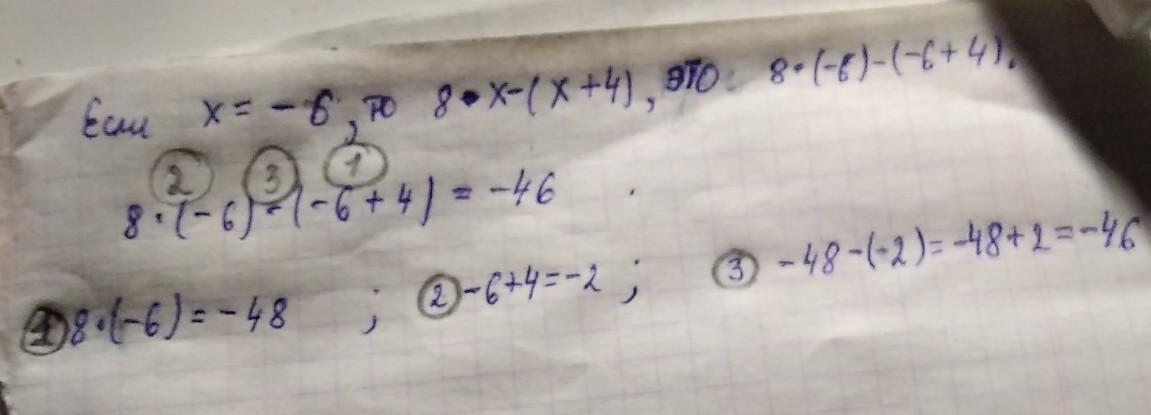 Если x = -6, то 8•x-(x+4), это: 8•(-6)-(-6+4).
② ③ ①
8•(-6)-(-6+4) = -46
① 8•(-6) = -48 ; ② -6+4=-2 ; ③ -48-(-2)=-48+2=-46